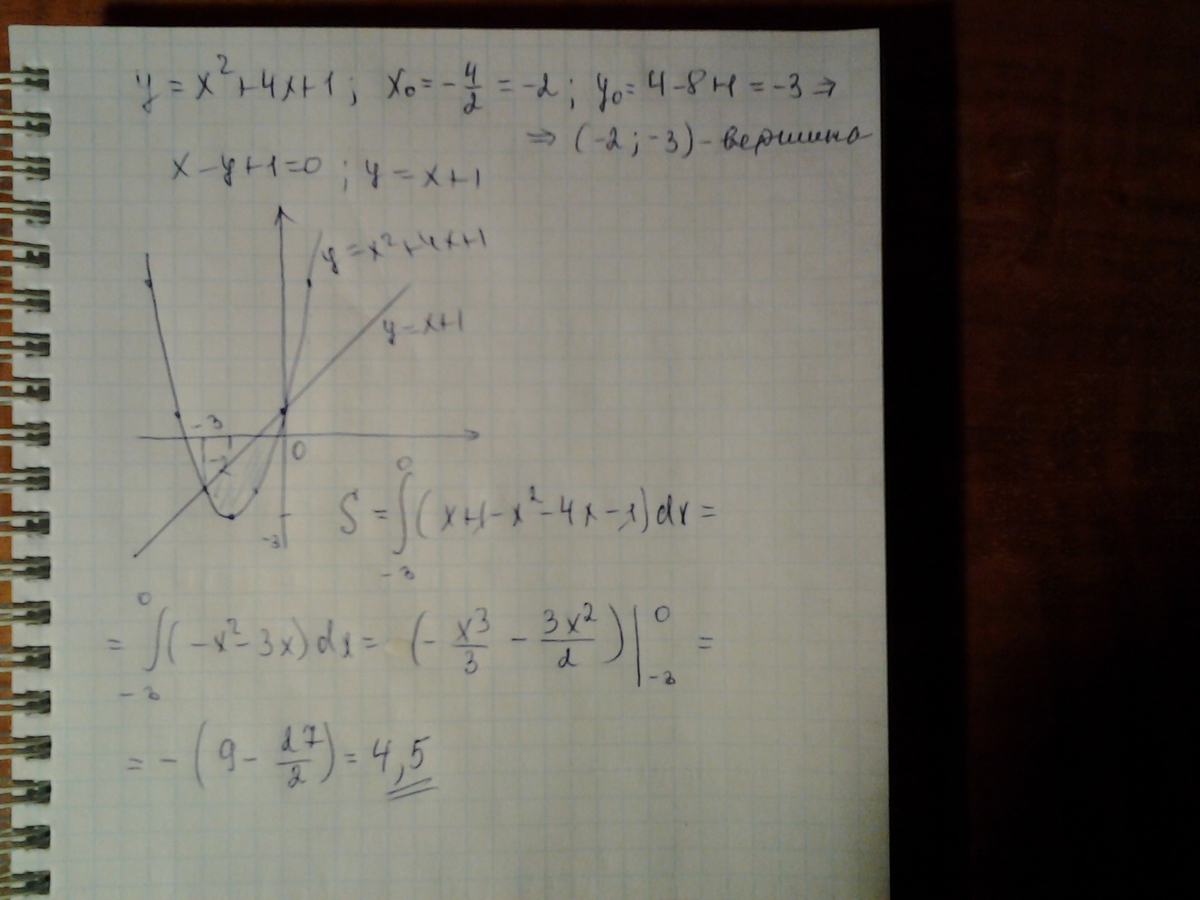 y = x²+4x+1; x₀ = -4/2 = -2; y₀ = 4-8+1 = -3 ⇒
⇒ (-2; -3) - вершина
x - y + 1 = 0; y = x+1
y = x²+4x+1
y = x+1
-3
-2
0
-3
S = ∫₋₃⁰ (x+1-x²-4x-1)dx =
= ∫₋₃⁰ (-x²-3x)dx = (-x³/3 - 3x²/2)|₋₃⁰ =
= -(9 - 27/2) = 4,5